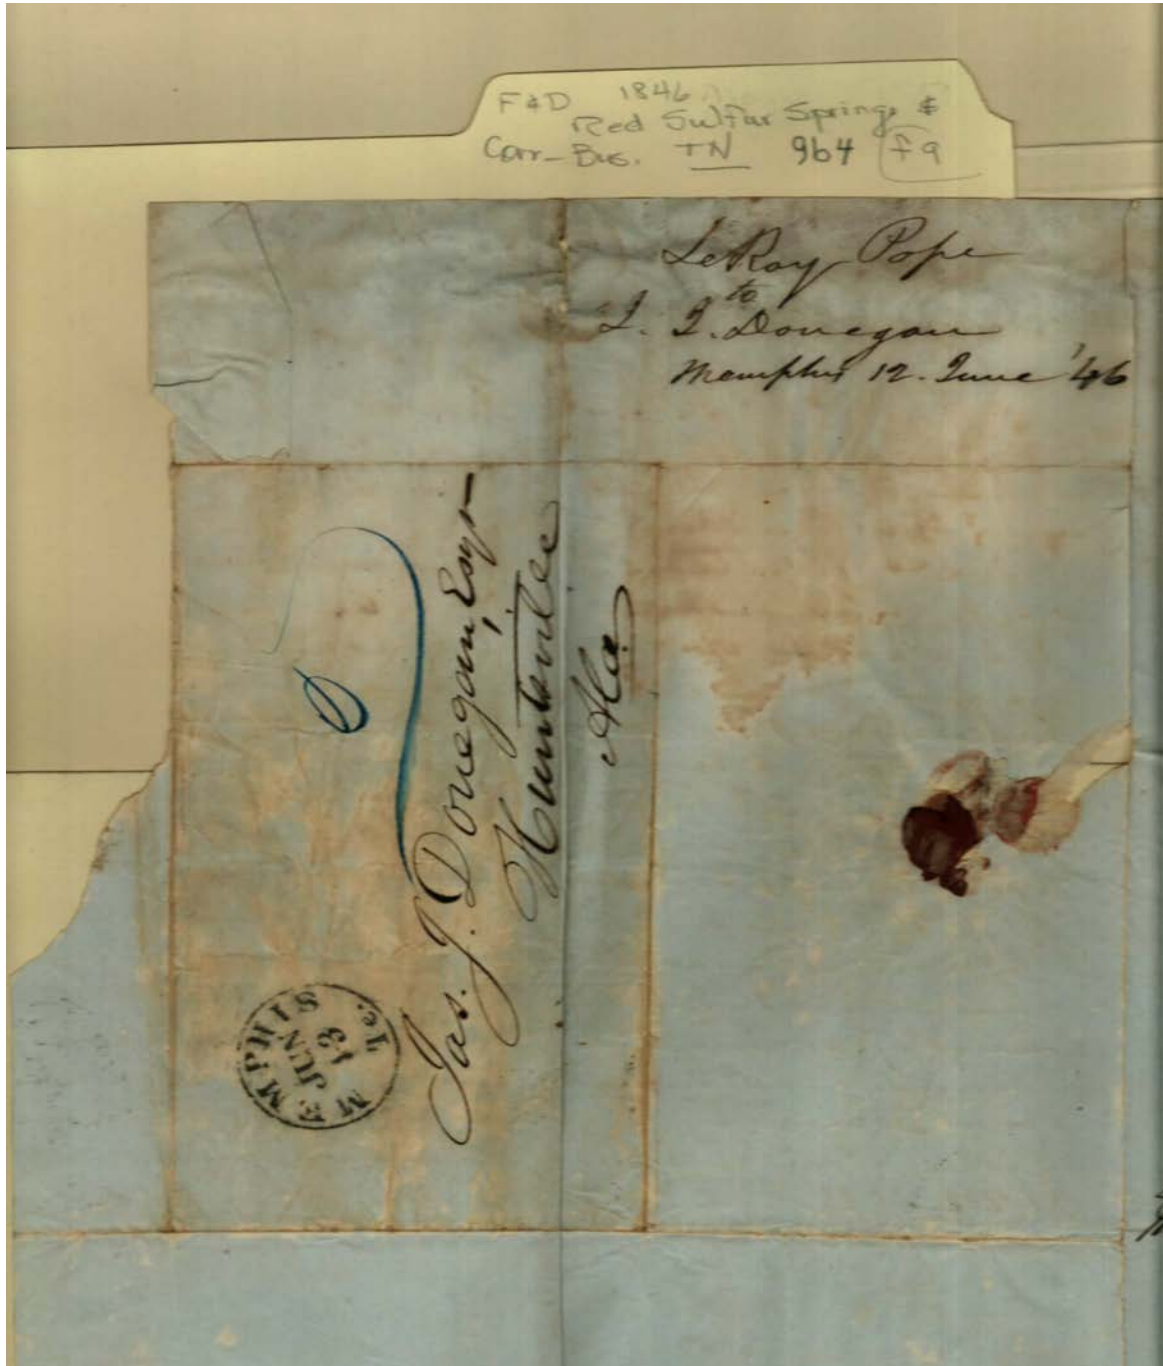 F&D 1846
Red Sulfur Springs &
Corr-Bus. TN 964 F9
LeRoy Pope
to
J. J. Donegan
Memphis 12. June '46
Jas. J. Donegan, Esqr
Huntsville
Ala
MEMPHIS
JUN
13
Te.